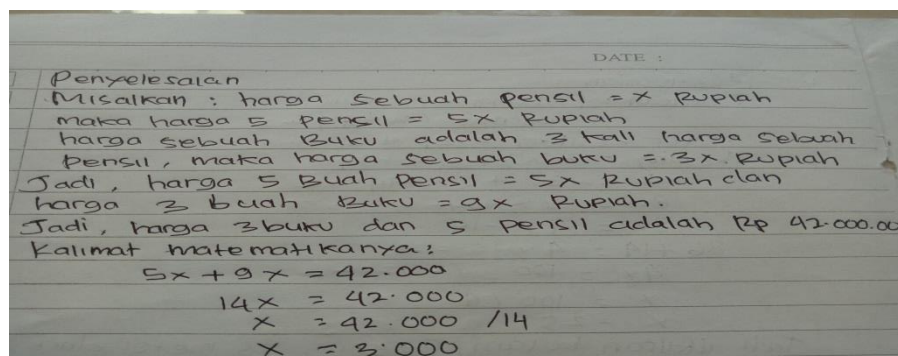 DATE :
Penyelesaian
Misalkan : harga sebuah pensil = x Rupiah
maka harga 5 pensil = 5x Rupiah
harga sebuah Buku adalah 3 kali harga sebuah
pensil, maka harga sebuah buku = 3x Rupiah
Jadi, harga 5 Buah Pensil = 5x Rupiah dan
harga 3 buah Buku = 9x Rupiah.
Jadi, harga 3 buku dan 5 pensil adalah Rp 42.000.00
Kalimat matematikanya:
5x + 9x = 42.000
14x = 42.000
x = 42.000 /14
x = 3.000